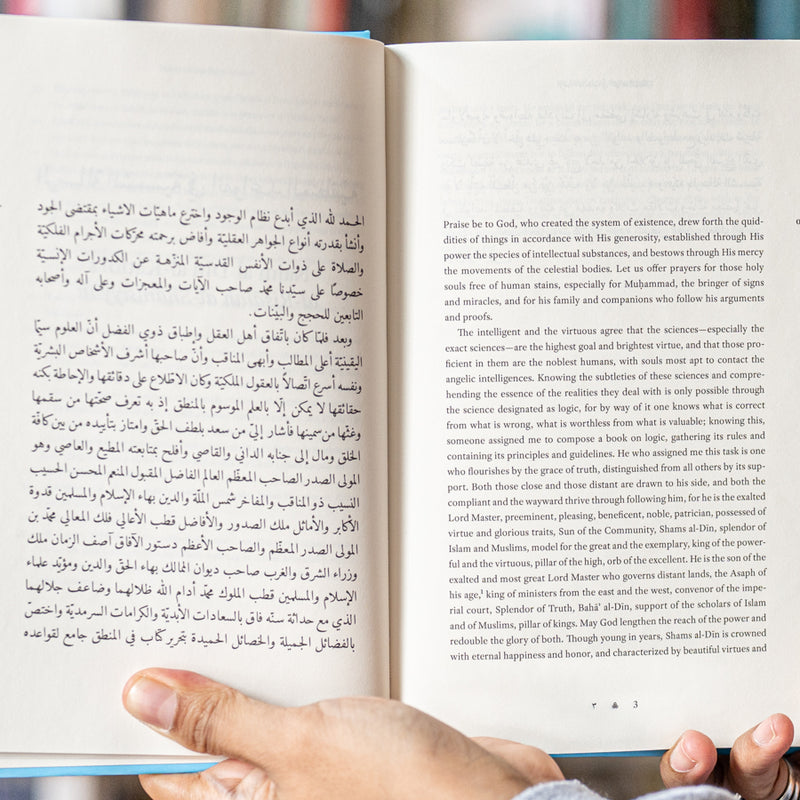 الحمد لله الذي أبدع نظام الوجود واخترع ماهيّات الاشياء بمقتضى الجود
وأنشأ بقدرته أنواع الجواهر العقليّة وأفاض برحمته محرّكات الأجرام الفلكيّة
والصلاة على ذوات الأنفس القدسيّة المنزّهة عن الكدورات الإنسيّة
خصوصًا على سيّدنا محمّد صاحب الآيات والمعجزات وعلى آله وأصحابه
التابعين للحجج والبيّنات.
وبعد فلمّا كان باتّفاق أهل العقل وإطباق ذوي الفضل أنّ العلوم سيّما
اليقينيّة أعلى المطالب وأبهى المناقب وأنّ صاحبها أشرف الأشخاص البشريّة
ونفسه أسرع اتّصالًا بالعقول الملكيّة وكان الاطّلاع على دقائقها والإحاطة بكنه
حقائقها لا يمكن إلّا بالعلم الموسوم بالمنطق إذ به تعرف صحّتها من سقمها
وغثّها من سمينها فأشار إليّ من سعد بلطف الحقّ وامتاز بتأييده من بين كافّة
الخلق ومال إلى جنابه الداني والقاصي وأفلح بمتابعته المطيع والعاصي وهو
المولى الصدر الصاحب المعظّم العالم الفاضل المقبول المنعم المحسن الحسيب
النسيب ذو المناقب والمفاخر شمس الملّة والدين بهاء الإسلام والمسلمين قدوة
الأكابر والأماثل ملك الصدور والأفاضل قطب الأعالي فلك المعالي محمّد بن
المولى الصدر المعظّم والصاحب الأعظم دستور الآفاق آصف الزمان ملك
وزراء الشرق والغرب صاحب ديوان الممالك بهاء الحقّ والدين ومؤيّد علماء
الإسلام والمسلمين قطب الملوك محمّد أدام الله ظلالهما وضاعف جلالهما
الذي مع حداثة سنّه فاق بالسعادات الأبديّة والكرامات السرمديّة واختصّ
بالفضائل الجميلة والخصائل الحميدة بتحرير كتاب في المنطق جامع لقواعده
Praise be to God, who created the system of existence, drew forth the quid-
dities of things in accordance with His generosity, established through His
power the species of intellectual substances, and bestows through His mercy
the movements of the celestial bodies. Let us offer prayers for those holy
souls free of human stains, especially for Muḥammad, the bringer of signs
and miracles, and for his family and companions who follow his arguments
and proofs.
The intelligent and the virtuous agree that the sciences—especially the
exact sciences—are the highest goal and brightest virtue, and that those pro-
ficient in them are the noblest humans, with souls most apt to contact the
angelic intelligences. Knowing the subtleties of these sciences and compre-
hending the essence of the realities they deal with is only possible through
the science designated as logic, for by way of it one knows what is correct
from what is wrong, what is worthless from what is valuable; knowing this,
someone assigned me to compose a book on logic, gathering its rules and
containing its principles and guidelines. He who assigned me this task is one
who flourishes by the grace of truth, distinguished from all others by its sup-
port. Both those close and those distant are drawn to his side, and both the
compliant and the wayward thrive through following him, for he is the exalted
Lord Master, preeminent, pleasing, beneficent, noble, patrician, possessed of
virtue and glorious traits, Sun of the Community, Shams al-Dīn, splendor of
Islam and Muslims, model for the great and the exemplary, king of the power-
ful and the virtuous, pillar of the high, orb of the excellent. He is the son of the
exalted and most great Lord Master who governs distant lands, the Asaph of
his age,¹ king of ministers from the east and the west, convenor of the impe-
rial court, Splendor of Truth, Bahāʾ al-Dīn, support of the scholars of Islam
and of Muslims, pillar of kings. May God lengthen the reach of the power and
redouble the glory of both. Though young in years, Shams al-Dīn is crowned
with eternal happiness and honor, and characterized by beautiful virtues and
٣ 3